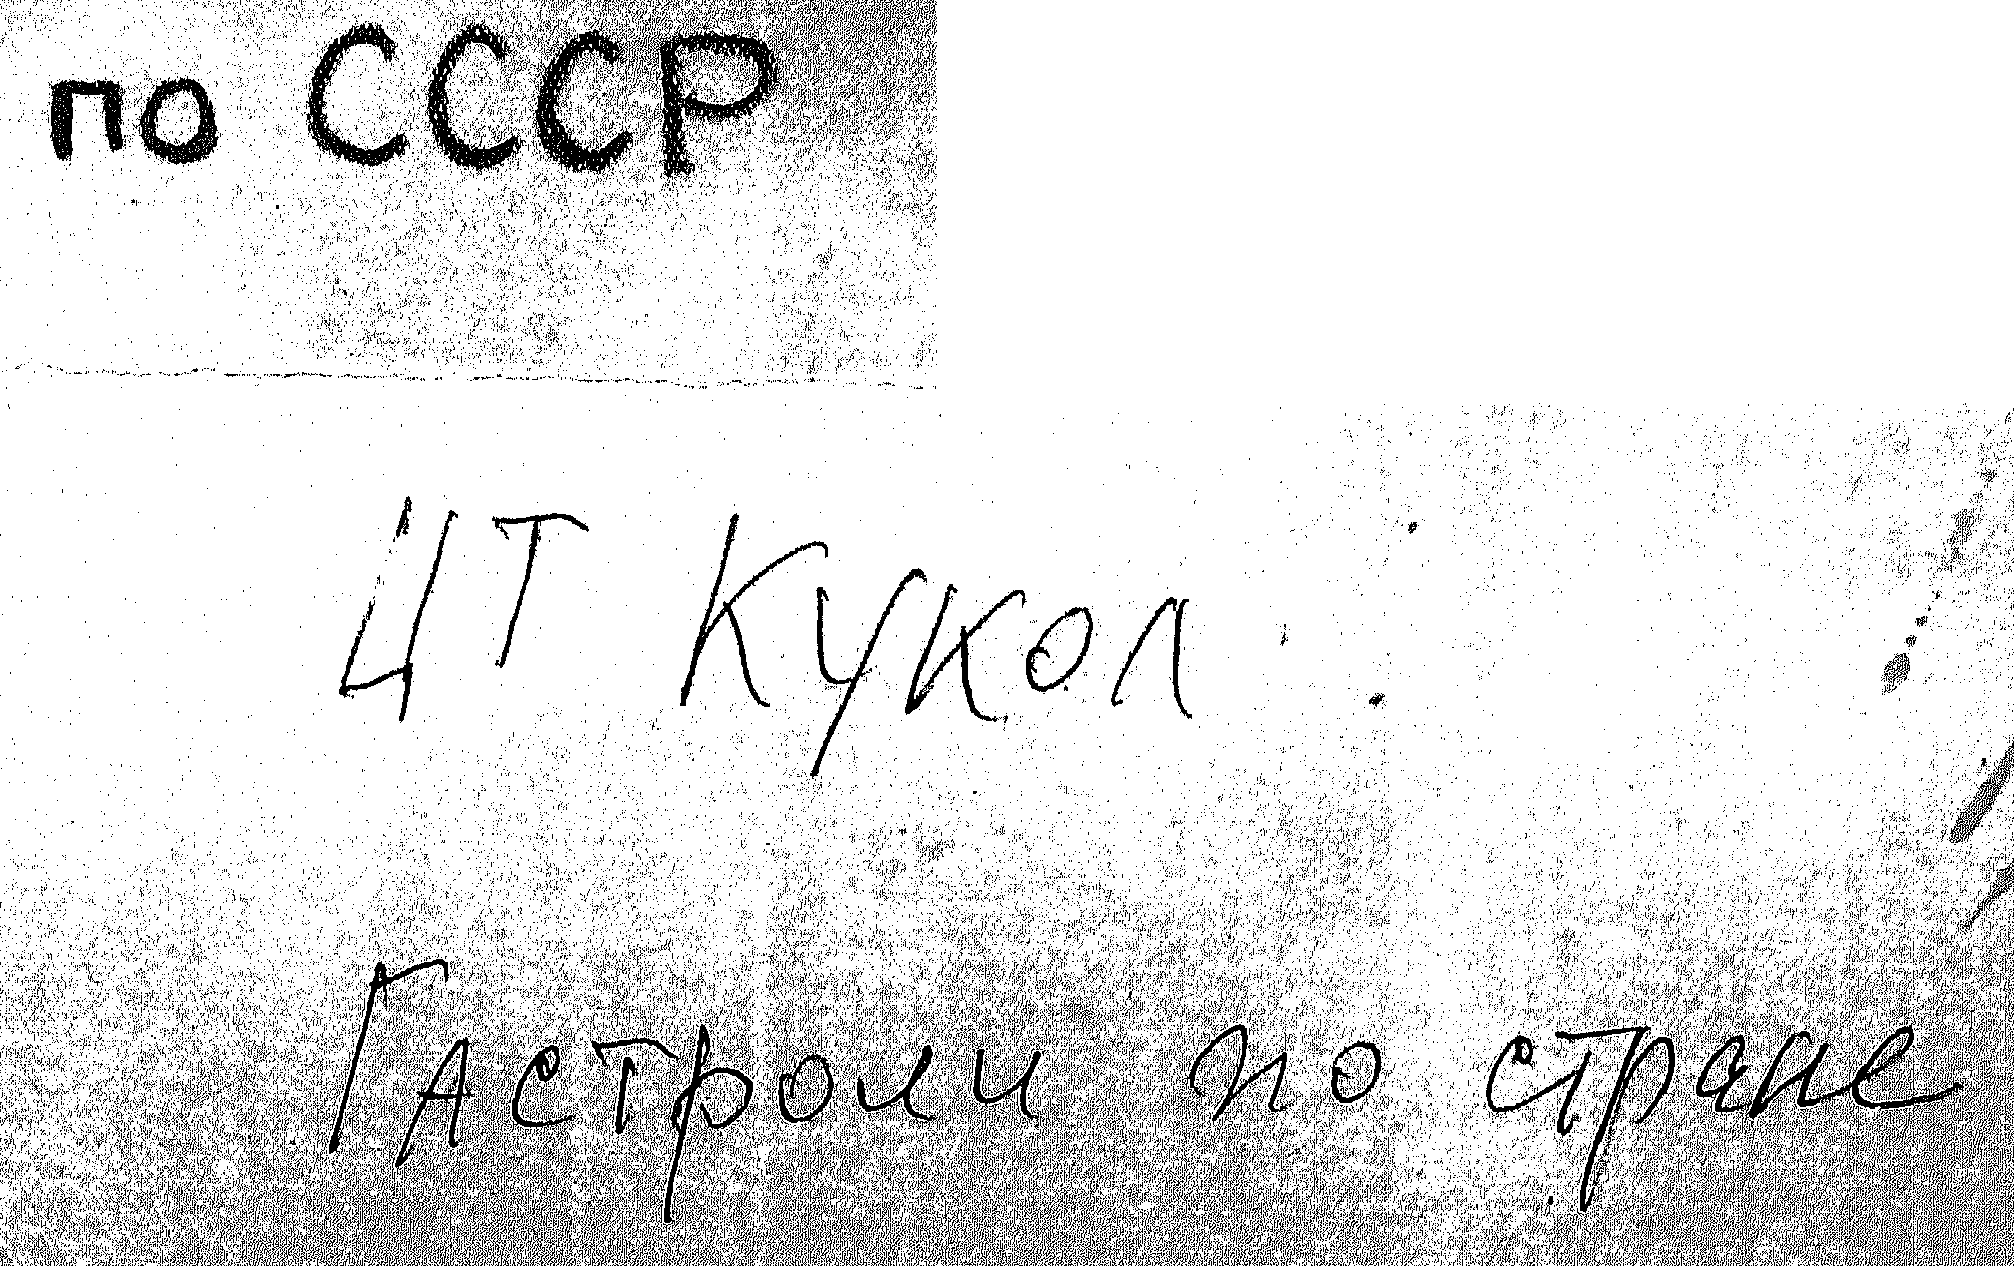 по СССР
ЦТ Кукол
Гастроли по стране